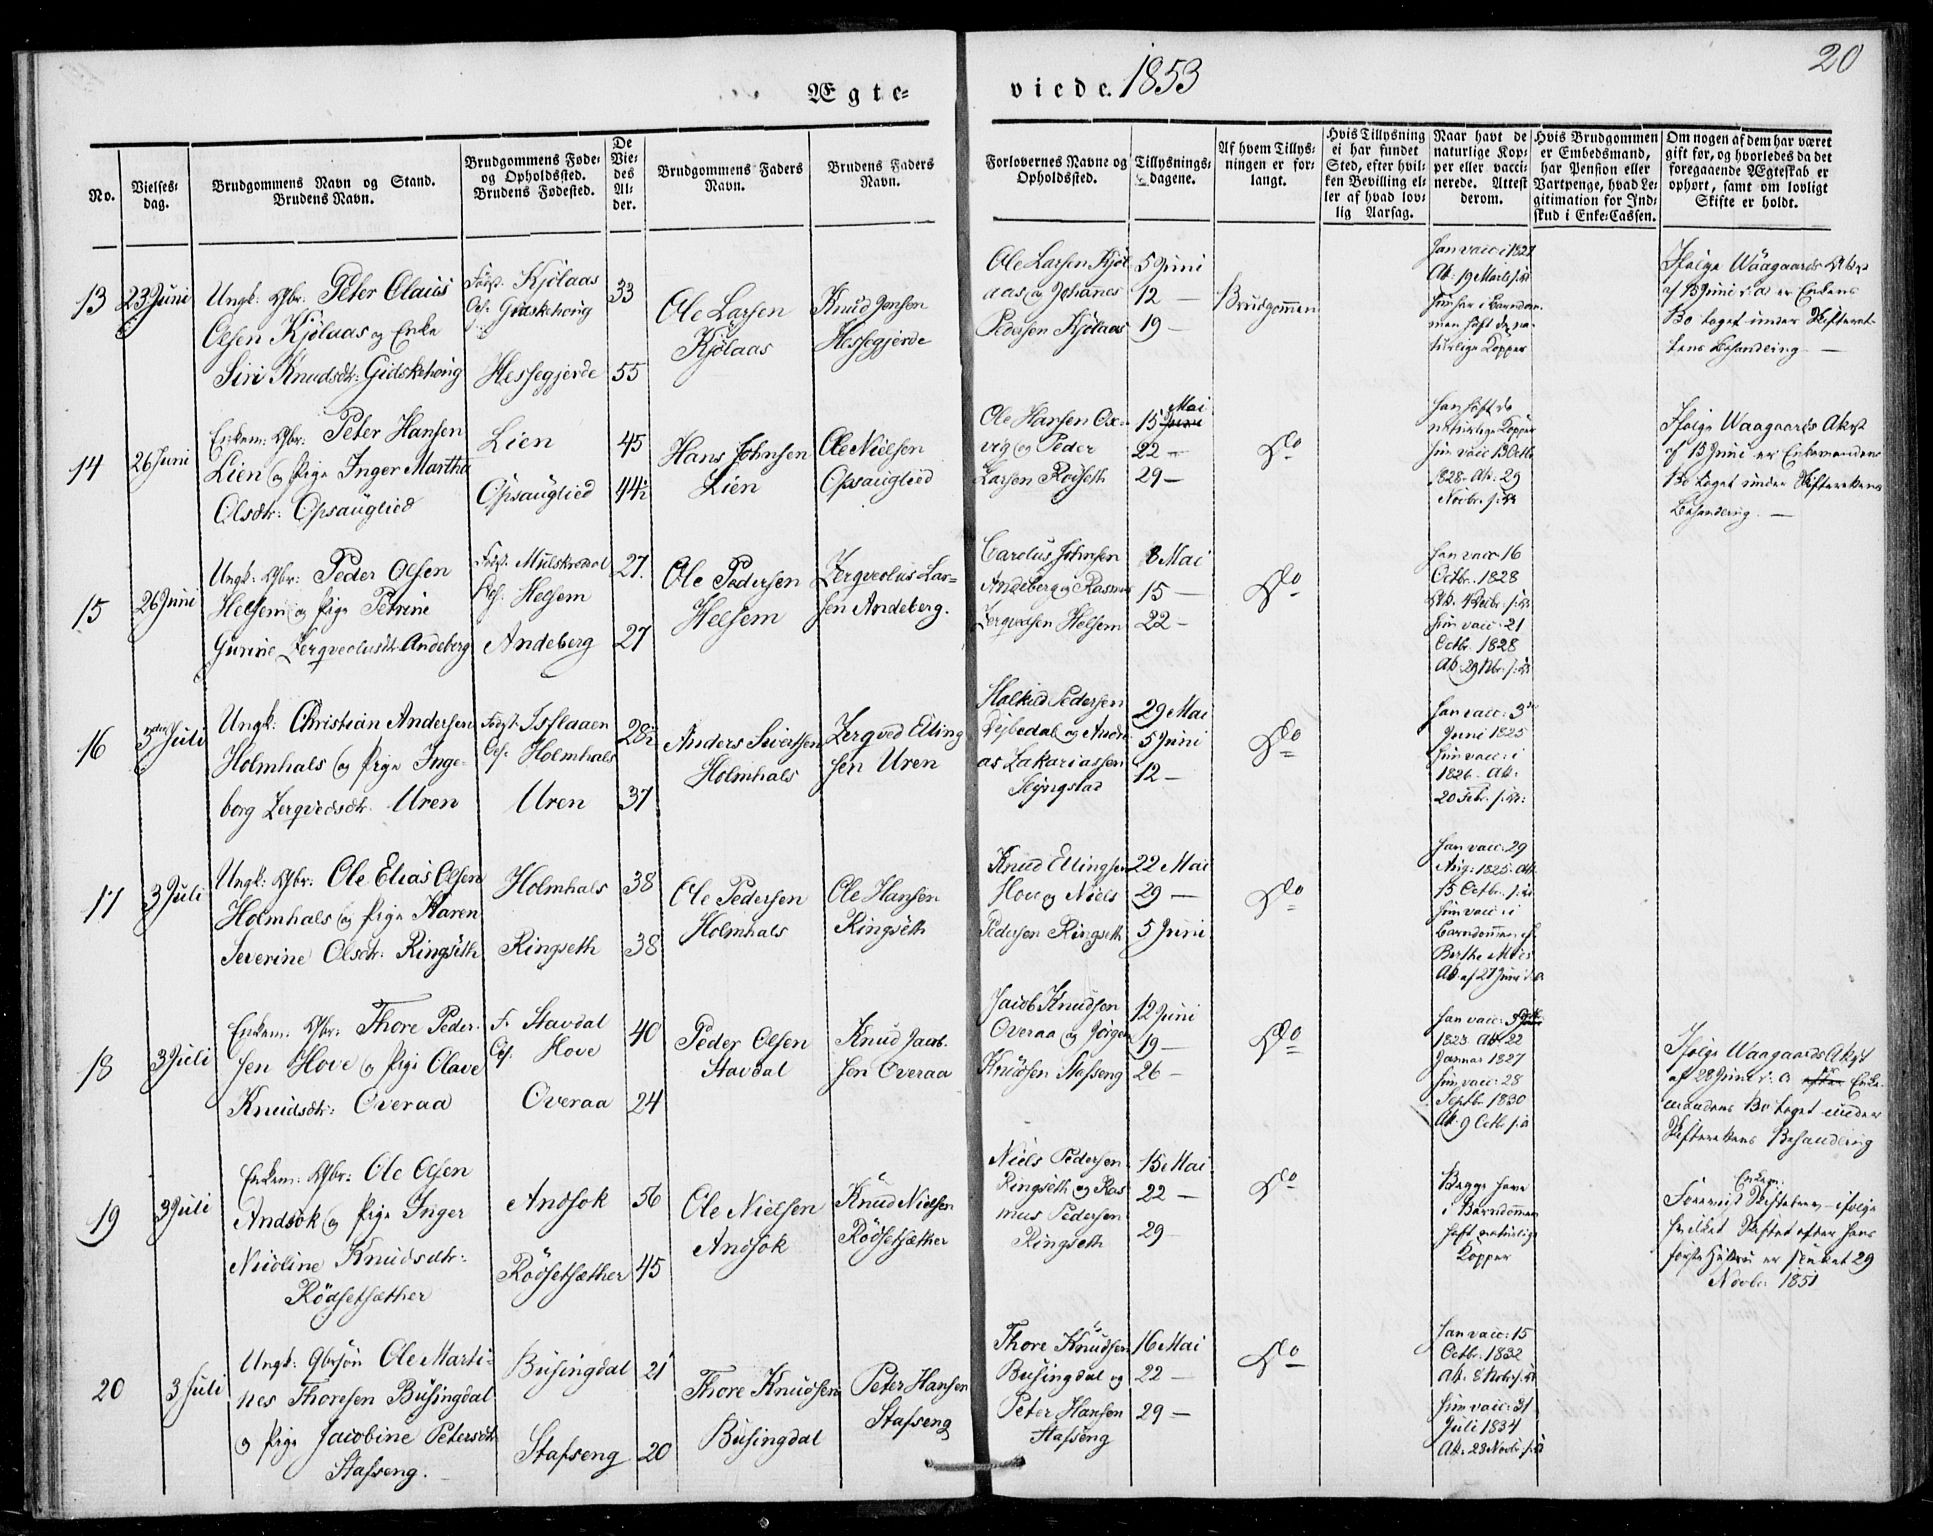 20
Ægte-
viede. 1853
No.
Vielses-
dag.
Brudgommens Navn og Stand.
Brudens Navn.
Brudgommens Føde-
og Opholdssted.
Brudens Fødested.
De
Vie-
des
Al-
der.
Brudgommens Faders
Navn.
Brudens Faders
Navn.
Forlovernes Navne og
Opholdssted.
Tillysnings-
dagene.
Af hvem Tillys-
ningen er for-
langt.
Hvis Tillysning
ei har fundet
Sted, efter hvil-
ken Bevilling el-
ler af hvad lov-
lig Aarsag.
Naar havt de
naturlige Kop-
per eller vacci-
nerede. Attest
derom.
Hvis Brudgommen
er Embedsmand,
har Pension eller
Vartpenge, hvad Le-
gitimation for Ind-
skud i Enke-Cassen.
Om nogen af dem har været
gift før, og hvorledes da det
foregaaende Ægteskab er
ophørt, samt om lovligt
Skifte er holdt.
13
23 Juni
Ungk: Gbr: Peter Olaus
Olsen Kjölaas og Enke
Siri Knudsdtr: Gidskehoug
Födt. Kjölaas
Gidskehoug
Hessegjerde
33
55
Ole Larsen
Kjölaas
Knud Jensen
Hessegjerde
Ole Larsen Kjöl
aas og Johannes
Pedersen Kjölaas
5 Juni
12 —
19 —
Brudgommen
Han vacc: 1827
At: 19 Marts s: A
Hun har i Barndom-
men haft de na-
turlige Kopper
Ifölge Waagaards Attest
af 13 Juni d: A er Enkens
Bo taget under Skifteret-
tens Behandling —
14
26 Juni
Enkem: Gbr: Peter Hansen
Lien og Pige Inger Martha
Olsdtr: Opsauglied
Lien
Opsauglied
45
44½
Hans Johnsen
Lien
Ole Nielsen
Opsauglied
Ole Hansen Ox-
vig og Peder
Larsen Röiseth
15 Mai
22 —
29 —
Do
Han haft de
naturlige Kopper
Hun vacc 13 Octb:
1828 - At: 29
Novbr. s: A
Ifölge Waagaards Attest
af 13 Juni er Enkemandens
Bo taget under Skifterettens
Behandling. —
15
26 Juni
Ungk: Gbr: Peder Olsen
Helsem og Pige Petrine
Gurine Jerqveolusdtr Andeberg
Helsem
Andeberg
27.
27
Ole Pedersen
Helsem
Jerqveolus Lar-
sen Andeberg.
Carolus Johnsen
Andeberg og Rasmus
Jerqvedsen Helsem
8 Mai
15 —
22 —
Do
Han vacc: 16
Octbr. 1828
At. 4 Decbr. s: A
Hun vacc: 21
Octbr. 1828
At: 29 Nbr. s: A
16
3 Juli
Ungk: Christian Andersen
Holmhals og Pige Inge-
borg Jerqvedsdtr. Uren
Födt. Isflaaen
Holmhals
Uren
28½
37
Anders Sivertsen
Holmhals
Jerqved Elling
sen Uren
Halkild Pedersen
Dybedal og Andre
as Zakariassen
Slyngstad
29 Mai
5 Juni
12 —
Do
Han vacc: 3die
Juni 1825
Hun vacc: i
1826 - At:
20 Febr. s: A:
17
3 Juli
Ungk: Gbr: Ole Elias Olsen
Holmhals og Pige Karen
Severine Olsdtr: Ringseth
Holmhals
Ringseth
38
38
Ole Pedersen
Holmhals
Ole Hansen
Ringseth
Knud Ellingsen
Hove og Niels
Pedersen Ringseth
22 Mai
29 —
5 Juni
Do
Han vacc: 29
Aug: 1825 - At:
15 Octbr. s: A
Hun vacc: i
Barndommen ef
Berthe Moes
At af 27 Juni d: A
18
3 Juli
Enkem: Gbr: Thore Peder-
sen Hove og Pige Olave
Knudsdtr: Overaa
F. Stavdal
Hove
Overaa
40
24
Peder Olsen
Stavdal
Knud Jacob-
sen Overaa
Jacob Knudsen
Overaa og Jörgen
Knudsen Stafseng
12 Juni
19 —
26 —
Do
Han vacc:
1823 At 22
Januar 1827
Hun vacc: 28
Septbr 1830
At. 9 Octbr s: A
Ifölge Waagaards Attest
af 28 Juni d: A Enke-
mandens Bo taget under
Skifterettens Behandling
19
3 Juli
Enkem: Gbr: Ole Olsen
Andsok og Pige Inger
Nicoline Knudsdtr:
Rödsetsæther
Andsok
Rödsetsæther
56
45
Ole Nielsen
Andsok
Knud Nielsen
Rödsetsæther
Niels Pedersen
Ringseth og Ras
mus Pedersen
Ringseth
15 Mai
22 —
29 —
Do
Begge have
i Barndommen
haft naturlige
Kopper
Enkem:
Foreviist Skiftebrev - ifölge
hvilket Skiftet efter hans
forste Hustru er sluttet 29
Novbr. 1851
20
3 Juli
Ungk: Gbrsön Ole Marti-
nes Thoresen Busingdal
og Pige Jacobine Petersdtr
Stafseng.
Busingdal
Stafseng
21
20
Thore Knudsen
Busingdal
Peter Hansen
Stafseng
Thore Knudsen
Busingdal og
Peter Hansen
Stafseng
16 Mai
22 —
29 —
Do
Han vacc: 15
Octbr. 1832
At. 8 Novbr. s: A
Hun vacc: 31
Juli 1834
At. 28 Novbr s: A